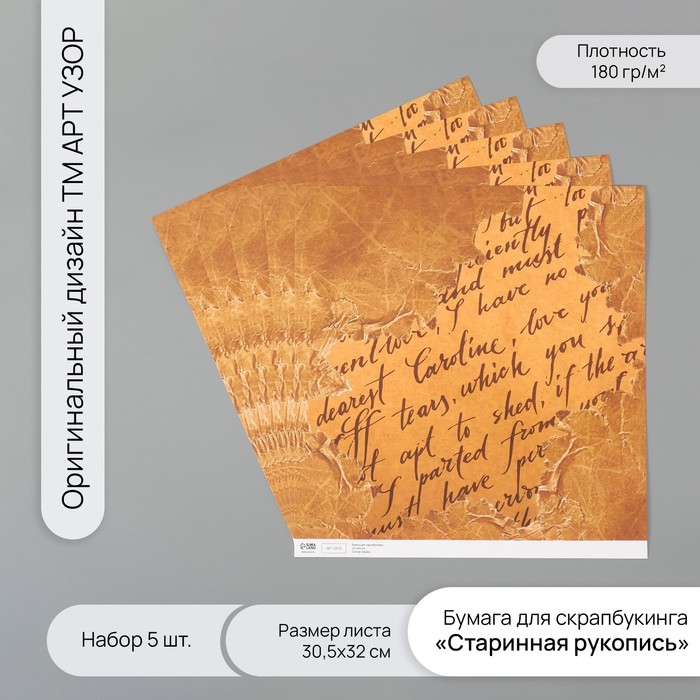 Оригинальный дизайн ТМ АРТ УЗОР
Плотность
180 гр/м²
but
iently
and must
I have no
ent love,
dearest Caroline, love you
off tears, which you s
of apt to shed, if the a
I parted from your
must have per
Набор 5 шт.
Размер листа
30,5х32 см
Бумага для скрапбукинга
«Старинная рукопись»